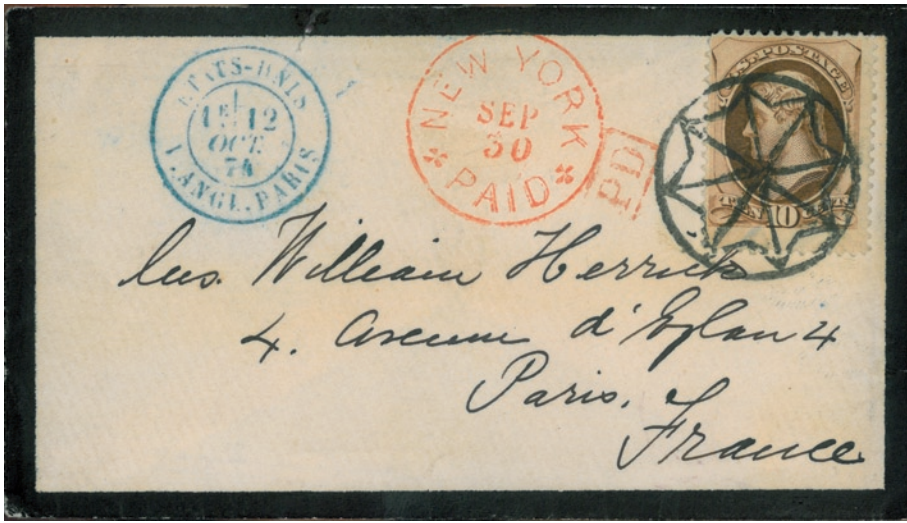 ETATS-UNIS
1E 12
OCT.
74
V. ANGL. PARIS
NEW YORK
SEP
30
PAID
PD
U.S. POSTAGE
TEN 10 CENTS
William Herrick
4. Avenue d'Eylau 4
Paris.
France